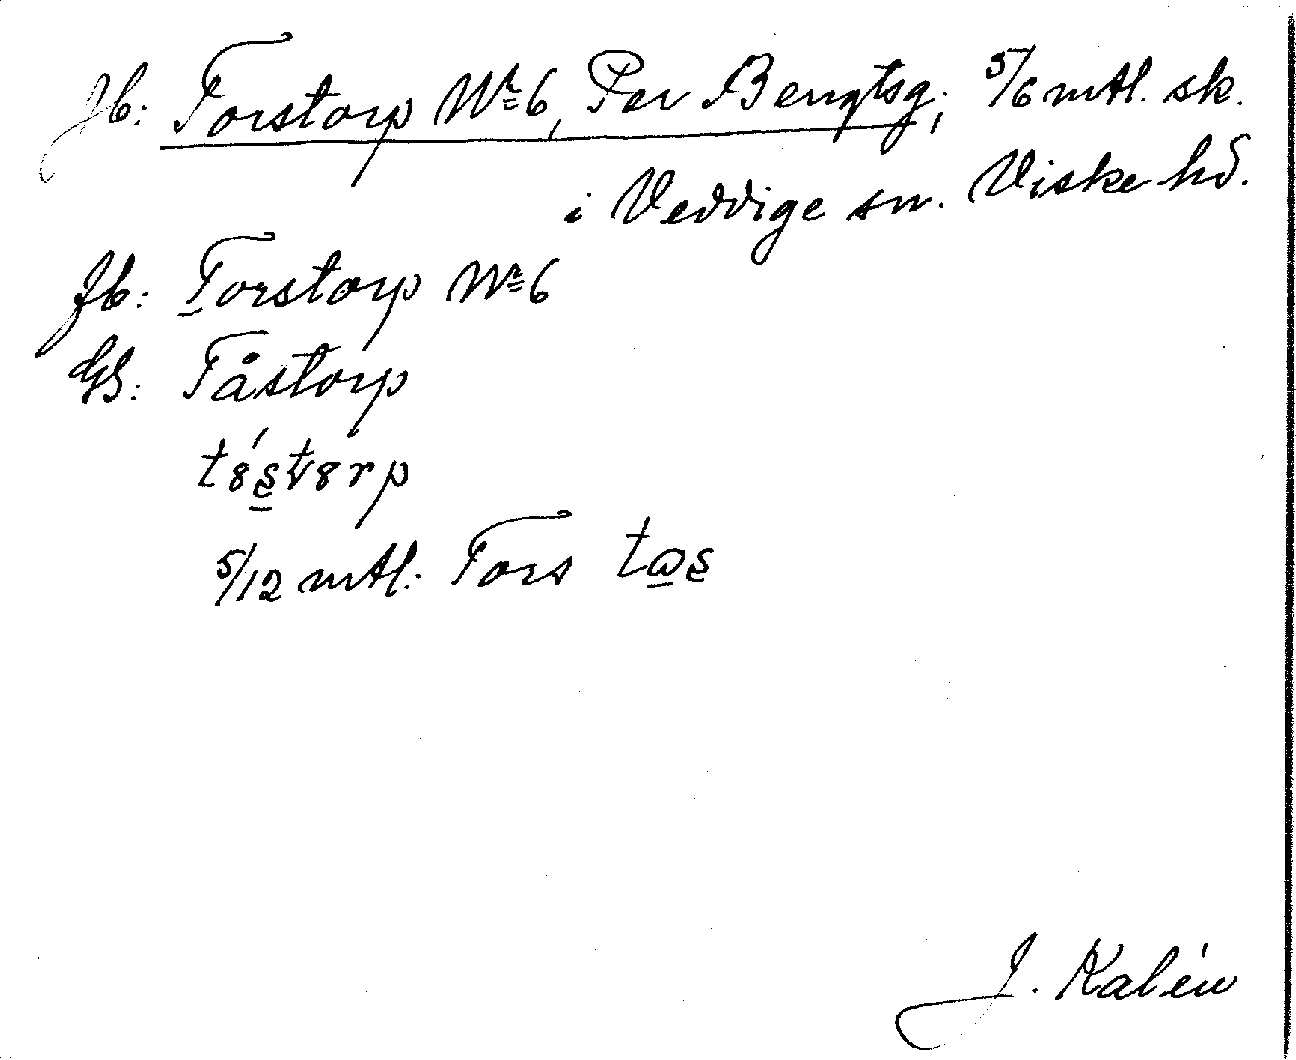 Jb: Torstorp Nr 6, Per Bengtsg; 5/6 mtl. sk.
i Veddige sn. Viske hd.
Jb: Torstorp Nr 6
GS: Tåstorp
tóstorp
5/12 mtl: Tors tas
J. Kalén